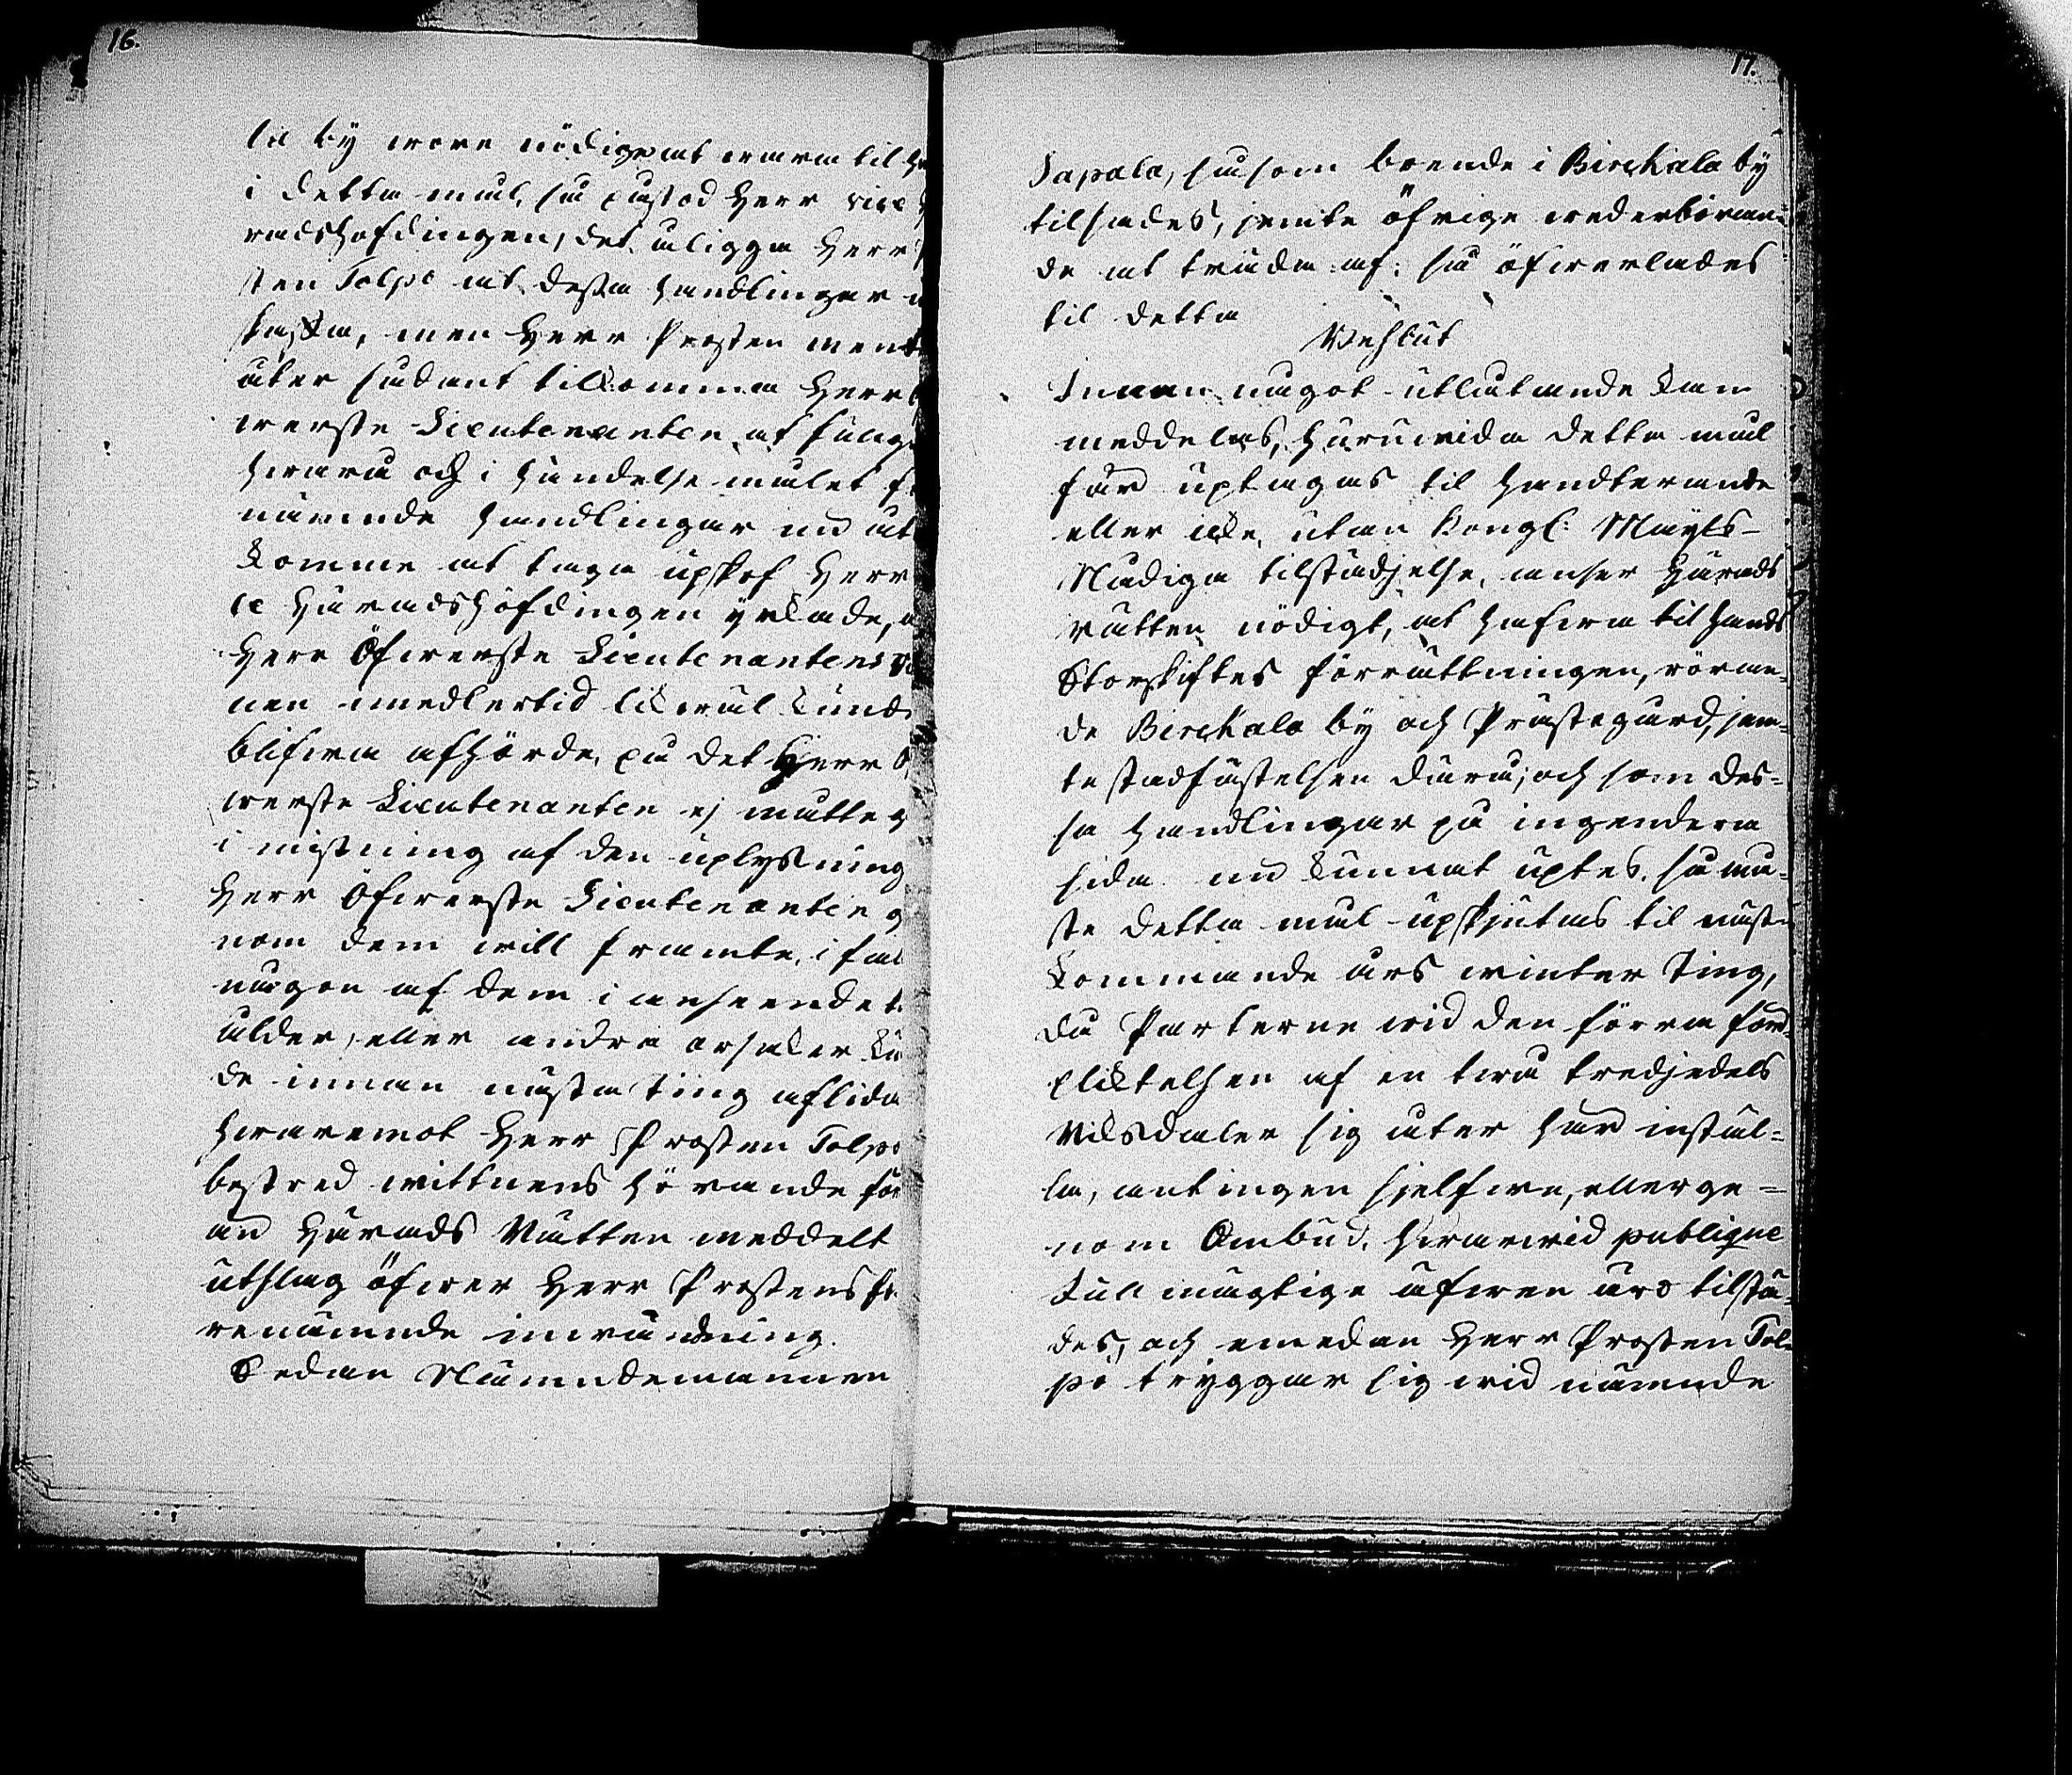 16.
la by wore nödige at wara til
i detta mål, så påstod Herr vice
radshöfdingen, det åligga Herr
sten Tolpo at dessa handlingar
skaffa, men Herr Prosten mente
åter sådant tilkomma Herr
werste Lieutenanten at
hwara och i händelse målet
nämnde handlingar nu
komme at taga upskof Herr
ce Häradshöfdingen yrkade,
Herr Öfwerste Lieutenantens
nen imedlertid likwäl kunde
blifwa afhörde, på det Herr Ö
werste Lieutenanten ej måtte
i mistning af den uplysning
Herr Öfwerste Lieutenanten
nom dem will framte, i fall
någon af dem i anseende t
ålder, eller andra orsaker
de innan nästa Ting aflida
hwaremot Herr Prosten Tolpo
bestred wittnens hörande för
än Härads Rätten meddelt
utslag öfwer Herr Prostens
renämnde inwändning.
Sedan Nämndemannen
17.
Sapala, såsom boende i Birckala by
tilsades, jemte öfrige wederböran-
de at träda af; så öfwerlades
til detta
Beslut
Innan något utlåtande kan
meddelas, huruwida detta mål
får uptagas til handterande
eller icke, utan Kongl: Mayts
Nådiga tilstädjelse, anser Härads
rätten nödigt, at hafwa til hands
Storskiftes förrättningen, röran-
de Birckala by och Prästegård, jem-
te stadfästelsen därå; och som des-
sa handlingar på ingendera
sida nu kunnat uptes, så må-
ste detta mål upskjutas til näst
kommande års winter Ting,
då Parterne wid den förra för-
pliktelsen af en twå tredjedels
Riksdaler sig åter här instäl-
la, antingen sjelfwe, eller ge-
nom Ombud, hwarwid publique
Full mägtige äfwen åro tilstä-
des, och emedan Herr Prosten Tol-
po tryggar sig wid nämnde